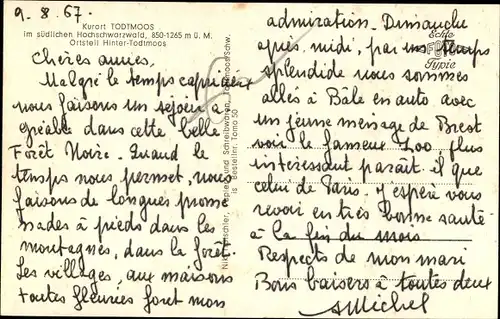 9.8.67.
Kurort TODTMOOS
im südlichen Hochschwarzwald, 850-1265 m ü. M.
Ortsteil Hinter-Todtmoos
Chères amies,
Malgré le temps capricieux
nous faisons un séjour a
gréable dans cette belle
Forêt Noire. Quand le
temps nous permet, nous
faisons de longues prome
nades à pieds dans les
montagnes, dans la forêt.
Les villages, aux maisons
toutes fleuries font mon
admiration. Dimanche
après midi, par un temps
splendide nous sommes
allés à Bâle en auto avec
un jeune ménage de Brest
voir le fameux Zoo plus
intéressant paraît il que
celui de Paris. J'espère vous
revoir en très bonne santé
à la fin du mois
Respects de mon mari
Bons baisers à toutes deux
AMichel
Echte
FOTO
Typie
Papier- und Schreibwaren, Todtmoos/Schw.
Bestellnr. Tomo 50